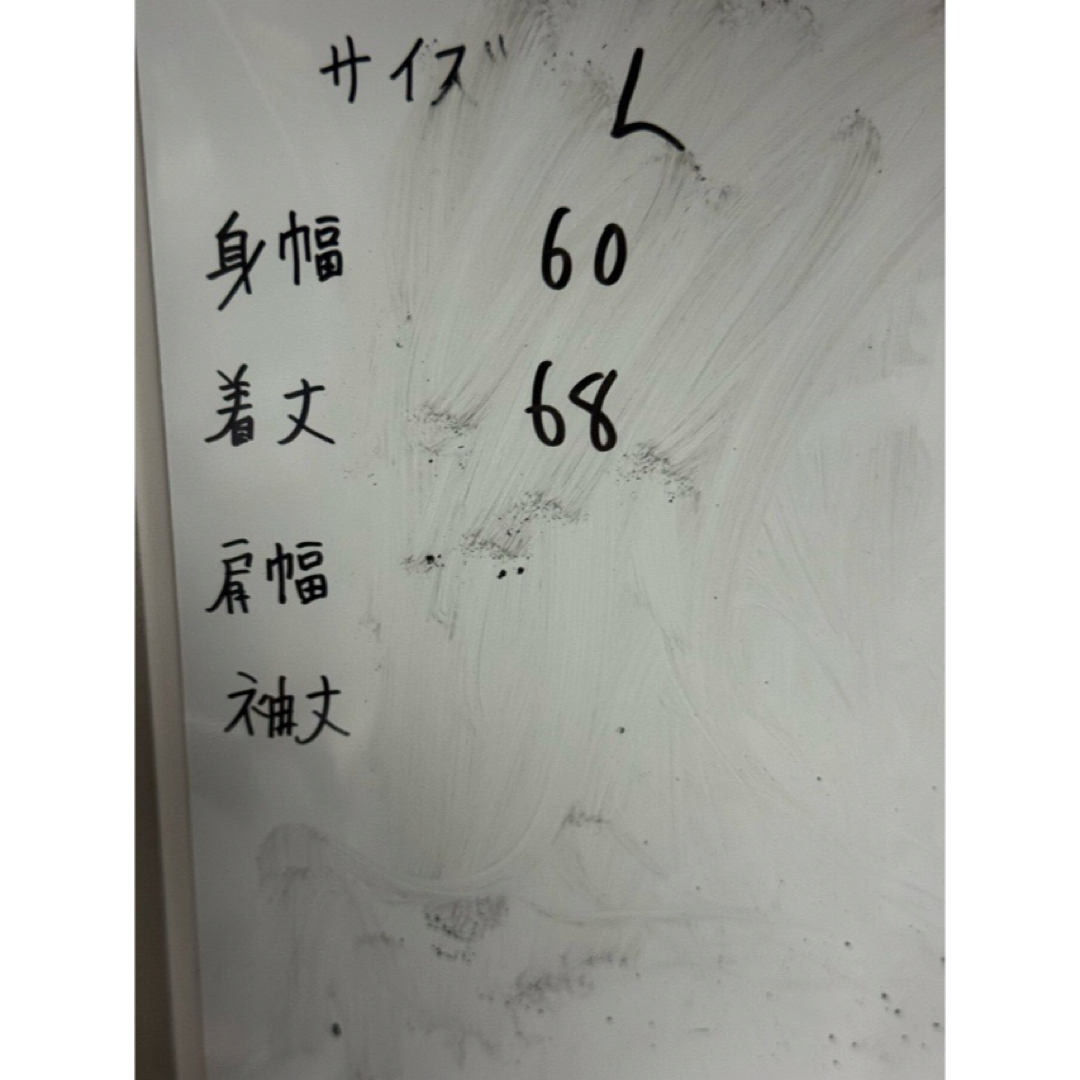 サイズ L
身幅 60
着丈 68
肩幅
袖丈